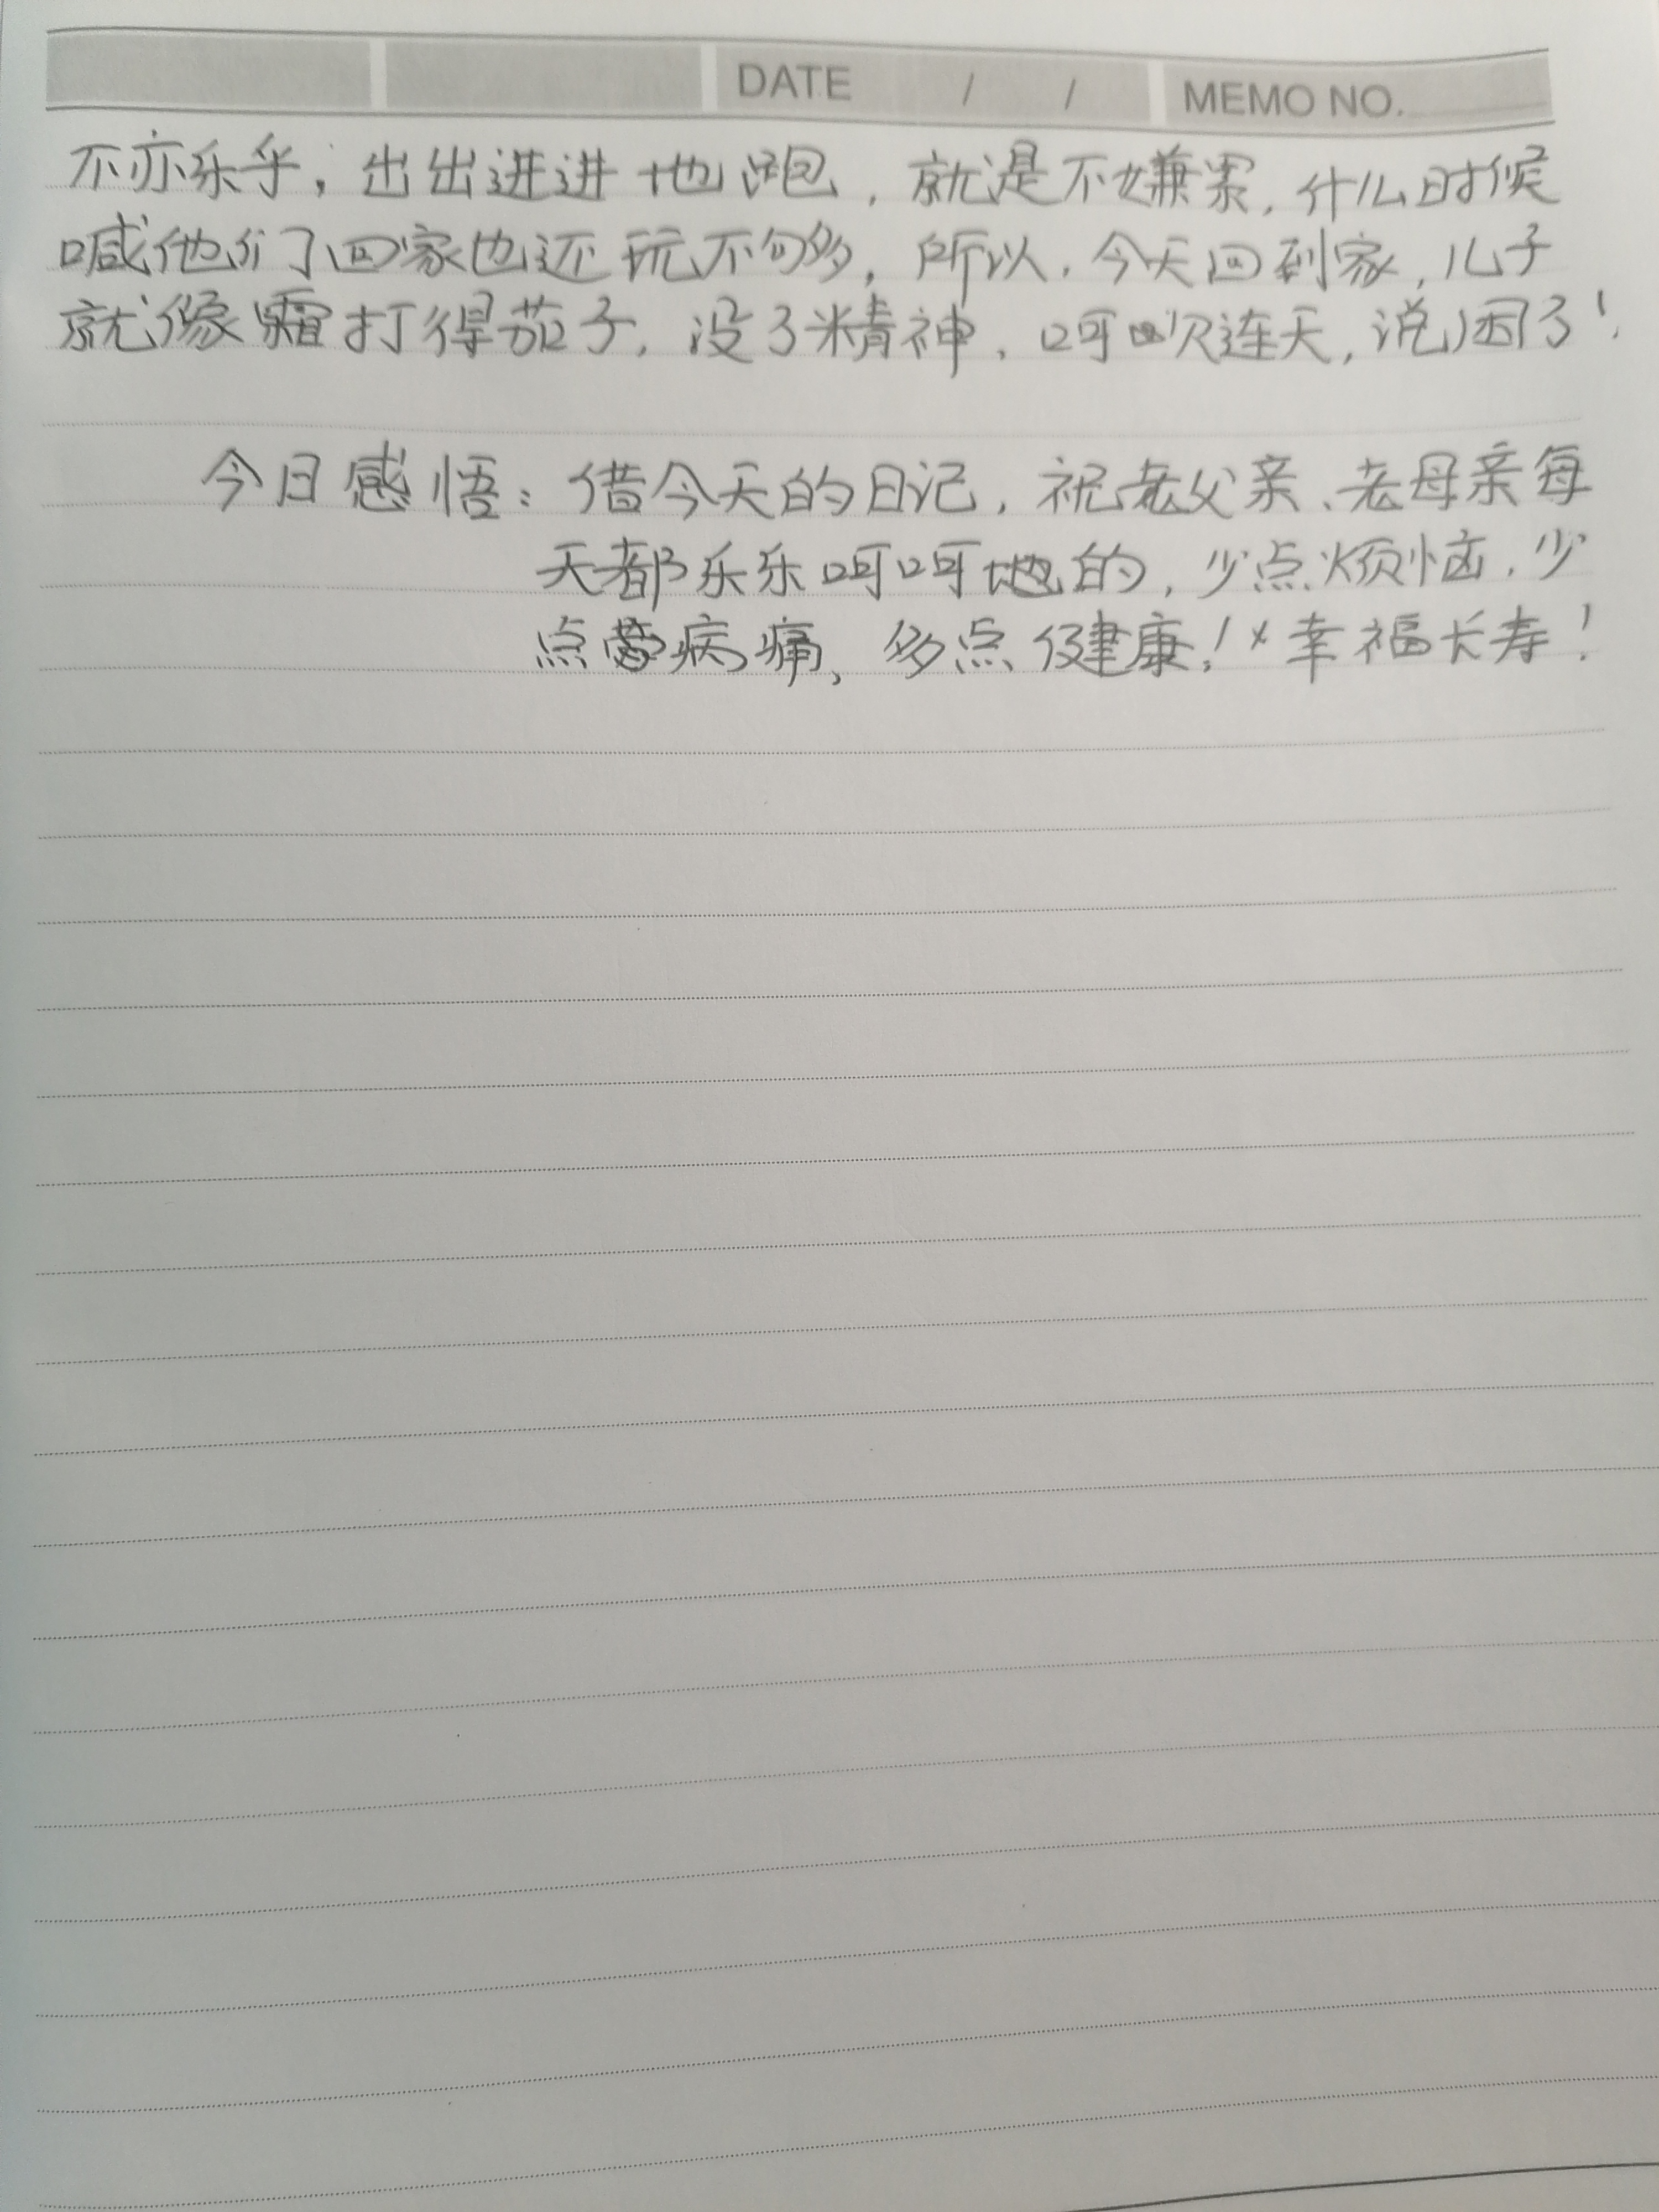 DATE / / MEMO NO.
不亦乐乎，出出进进地跑，就是不嫌累，什么时候
喊他们回家也还玩不够，所以，今天回到家，儿子
就像霜打得茄子，没了精神，呵欠连天，说困了！
今日感悟：借今天的日记，祝老父亲、老母亲每
天都乐乐呵呵地的，少点烦恼，少
点病痛，多点健康！幸福长寿！